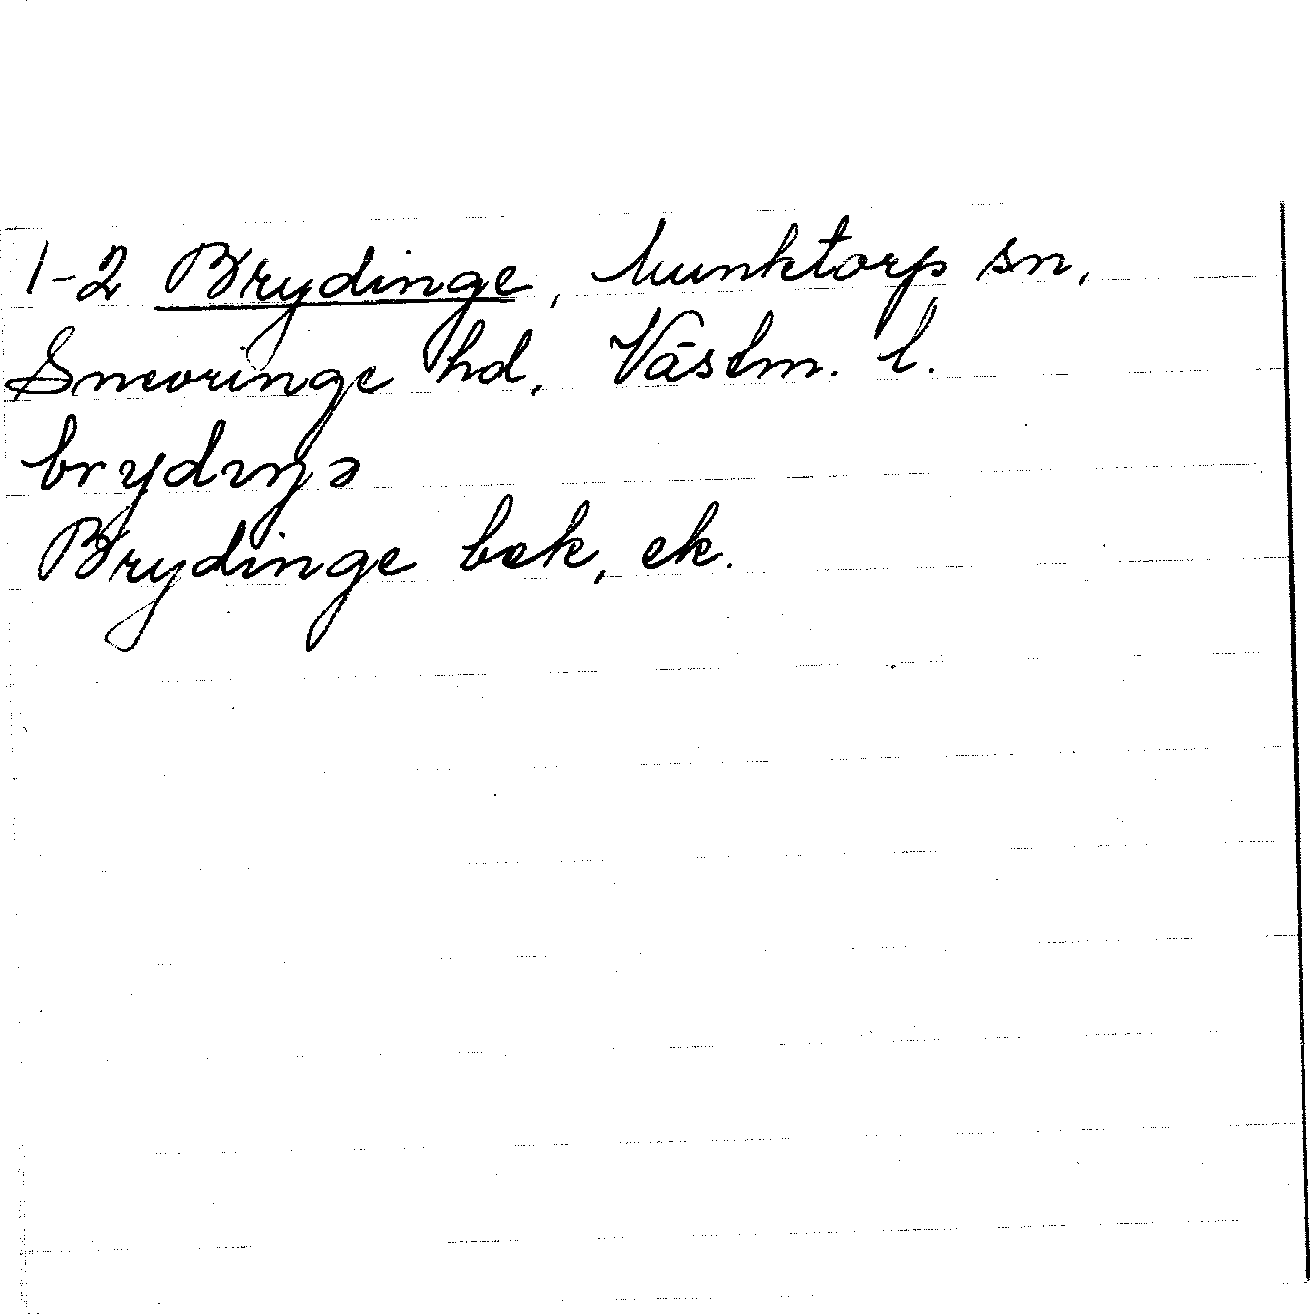 1-2 Brydinge, Munktorp sn,
Snevringe hd. Västm. l.
brydıŋə
Brydinge bek, ek.